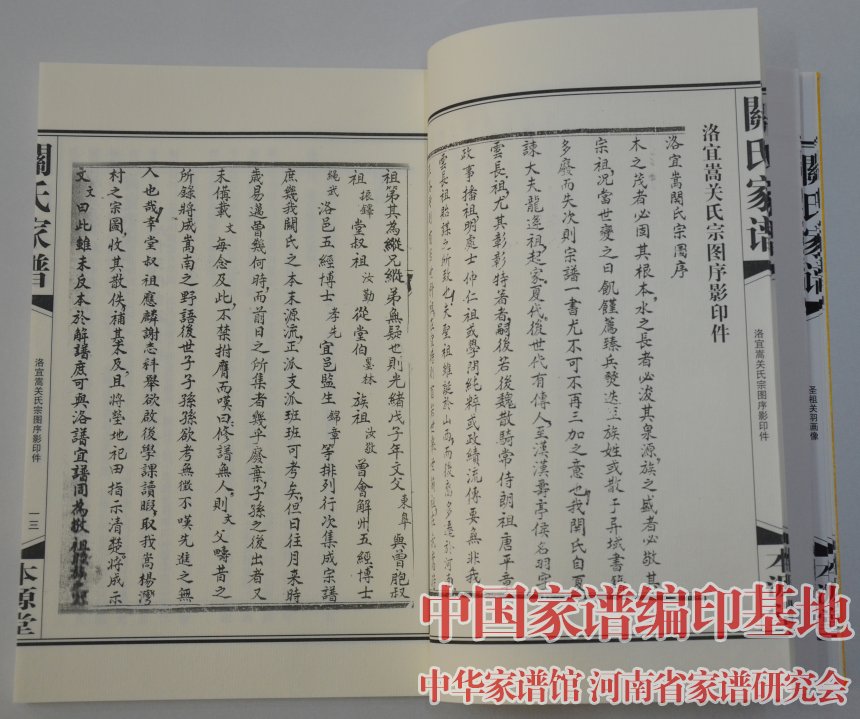 洛宜嵩关氏宗图序影印件
洛宜嵩関氏宗圖序
木之茂者必固其根本水之長者必浚其泉源族之盛者必敬其
宗祖况當世變之日飢饉薦臻兵燹迭 族姓或散于异域書
多廢而失次則宗譜一書尤不可不再三加之意也我関氏自夏
諫大夫龍逄祖起家夏代後世代有傳人至漢漢壽亭侯名羽字
雲長祖尤其彰彰特著者嗣後若後魏散騎常侍朗祖唐平章
政事播祖明處士仲仁祖或學問純粹或政績流傳要無非我
雲長祖貽謀之所致也夫聖祖雖誕於山西而後裔多遷於河南
關氏家譜
洛宜嵩关氏宗图序影印件
關氏家譜
圣祖关羽画像
祖第其為縱兄縱弟無疑也則光緒戊子年文父東阜與曾胞叔
祖振鐸堂叔祖汝勤從堂伯墨林族祖汝敬曾會解州五經博士
繩武洛邑五經博士孝先宜邑監生錦章等排列行次集成宗譜
庶幾我關氏之本末源流正派支派班班可考矣但日往月來時
歲易邁曾幾何時而前日之所集者幾乎廢棄子孫之後出者又
未備載文每念及此不禁拊膺而嘆曰修譜無人則文父疇昔之
所錄將成嵩南之野語後世子子孫孫欲考無徵不嘆先進之無
人也哉幸堂叔祖應麟謝志科舉欲啟後學課讀暇取我嵩楊灣
村之宗圖收其散佚補其未及且將塋地祀田指示清楚將成示
文文曰此雖未反本於解譜庶可與洛譜宜譜同為敬祖
關氏家譜
洛宜嵩关氏宗图序影印件
一三
本源堂
中国家谱编印基地
中华家谱馆 河南省家谱研究会